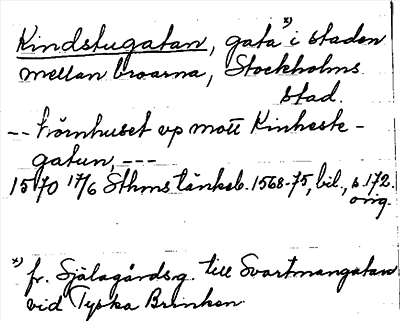 Kindstugatan, gata *) i staden
mellan broarna, Stockholms
stad.
-- hörnhuset vp mott Kinheste-
gatun, ---
1570 17/6 Sthms tänkeb. 1568-75, bil., s 172.
orig.
*) fr. Själagårdsg. till Svartmangatan
vid Tyska Brinken